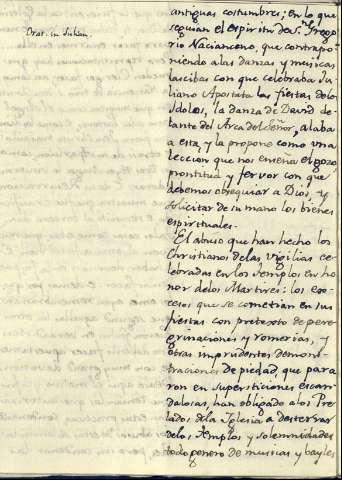 Orat. in Julian.
antiguas costumbres; en lo que
seguian el espiritu de S. Grego
rio Nacianceno, que contrapo
niendo a las danzas y musicas
lascibas con que celebraba Ju
liano Apostata las fiestas delos
Idolos, la danza de David de
lante del Arca del Señor, alaba
a esta, y la propone como una
leccion que nos enseña el gozo
prontitud y fervor con que
debemos obsequiar a Dios, y
solicitar de su mano los bienes
espirituales.
El abuso que han hecho los
Christianos delas vigilias ce
lebradas en los Templos en ho
nor delos Martires: los exce
cesos que se cometian en sus
fiestas con pretexto de pere
grinaciones y romerias, y
otras imprudentes demons
traciones de piedad, que para
ron en supersticiones escan
dalosas, han obligado alos Pre
lados dela Iglesia a desterrar
delos Templos y solemnidades
todo genero de musicas y bayles